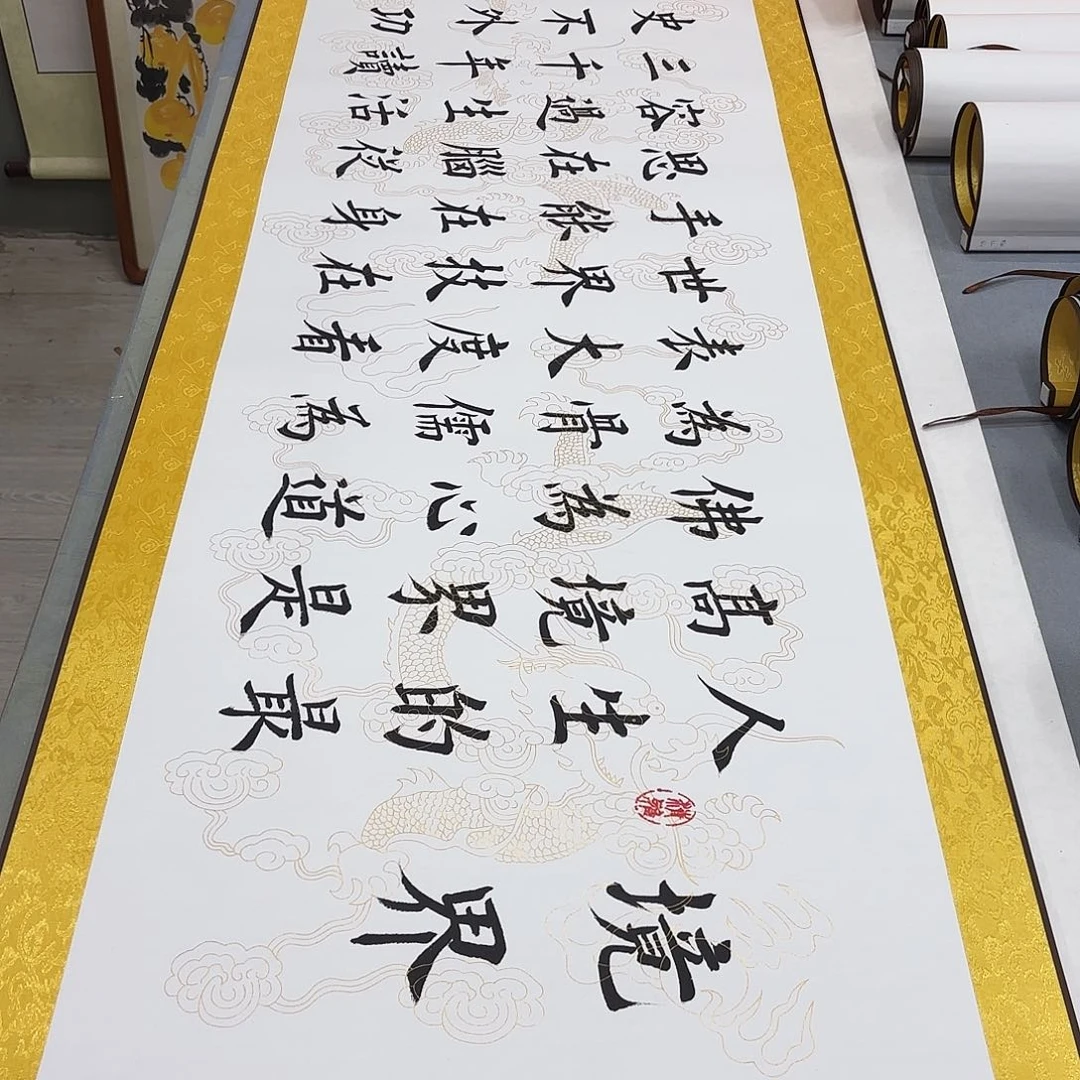 境界
人生的最
高境界是
佛為心道
為骨儒為
表大度看
世界技在
手能在身
思在腦從
容過生活
三千年讀
史不外功